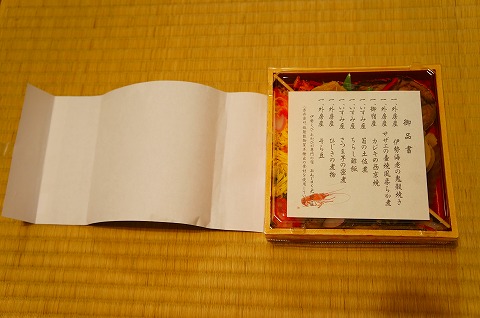 御品書
一 外房産 伊勢海老の鬼殻焼き
一 外房産 サザエの壷焼風柔らか煮
一 御宿産 カジキの西京焼
一 いすみ産 筍の土佐煮
一 いすみ産 ちらし酢飯
一 いすみ産 さつま芋の蜜煮
一 外房産 ひじきの煮物
一 外房産 そら豆